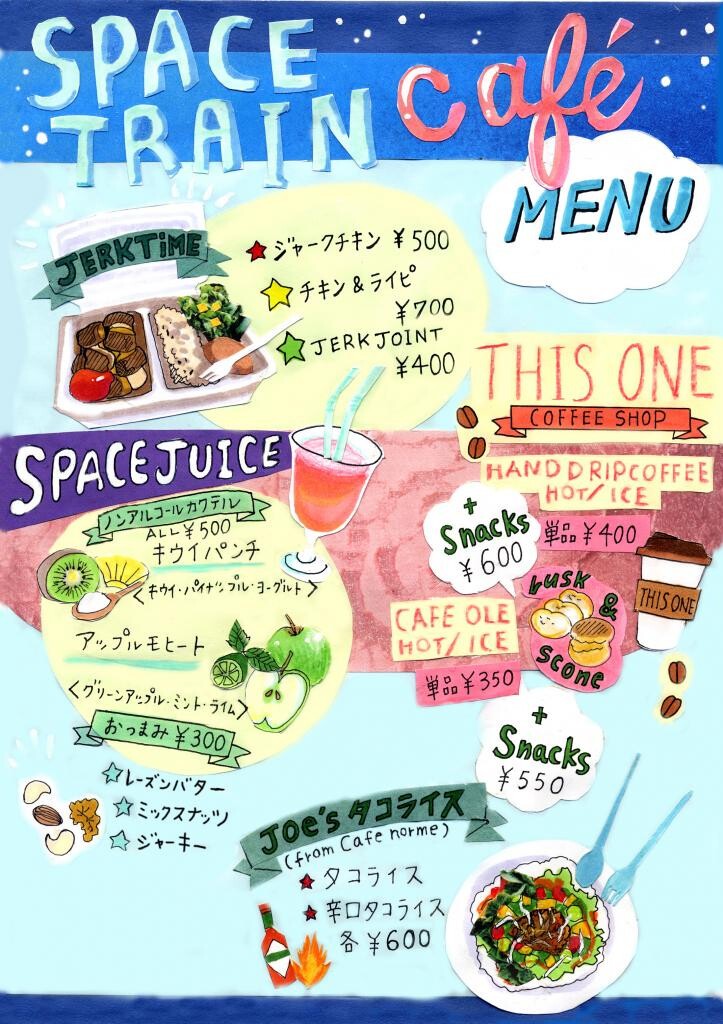 SPACE
TRAIN
café
MENU
JERKTiME
ジャークチキン ¥500
チキン&ライピ
¥700
JERKJOINT
¥400
THIS ONE
COFFEE SHOP
HAND DRIPCOFFEE
HOT/ICE
単品¥400
+
Snacks
¥600
rusk
&
scone
THIS ONE
CAFE OLE
HOT/ICE
単品¥350
+
Snacks
¥550
SPACEJUICE
ノンアルコールカクテル
ALL¥500
キウイパンチ
<キウイ・パイナップル・ヨーグルト>
アップルモヒート
<グリーンアップル・ミント・ライム>
おつまみ¥300
レーズンバター
ミックスナッツ
ジャーキー
JOe's タコライス
(from Cafe norme)
タコライス
辛口タコライス
各¥600